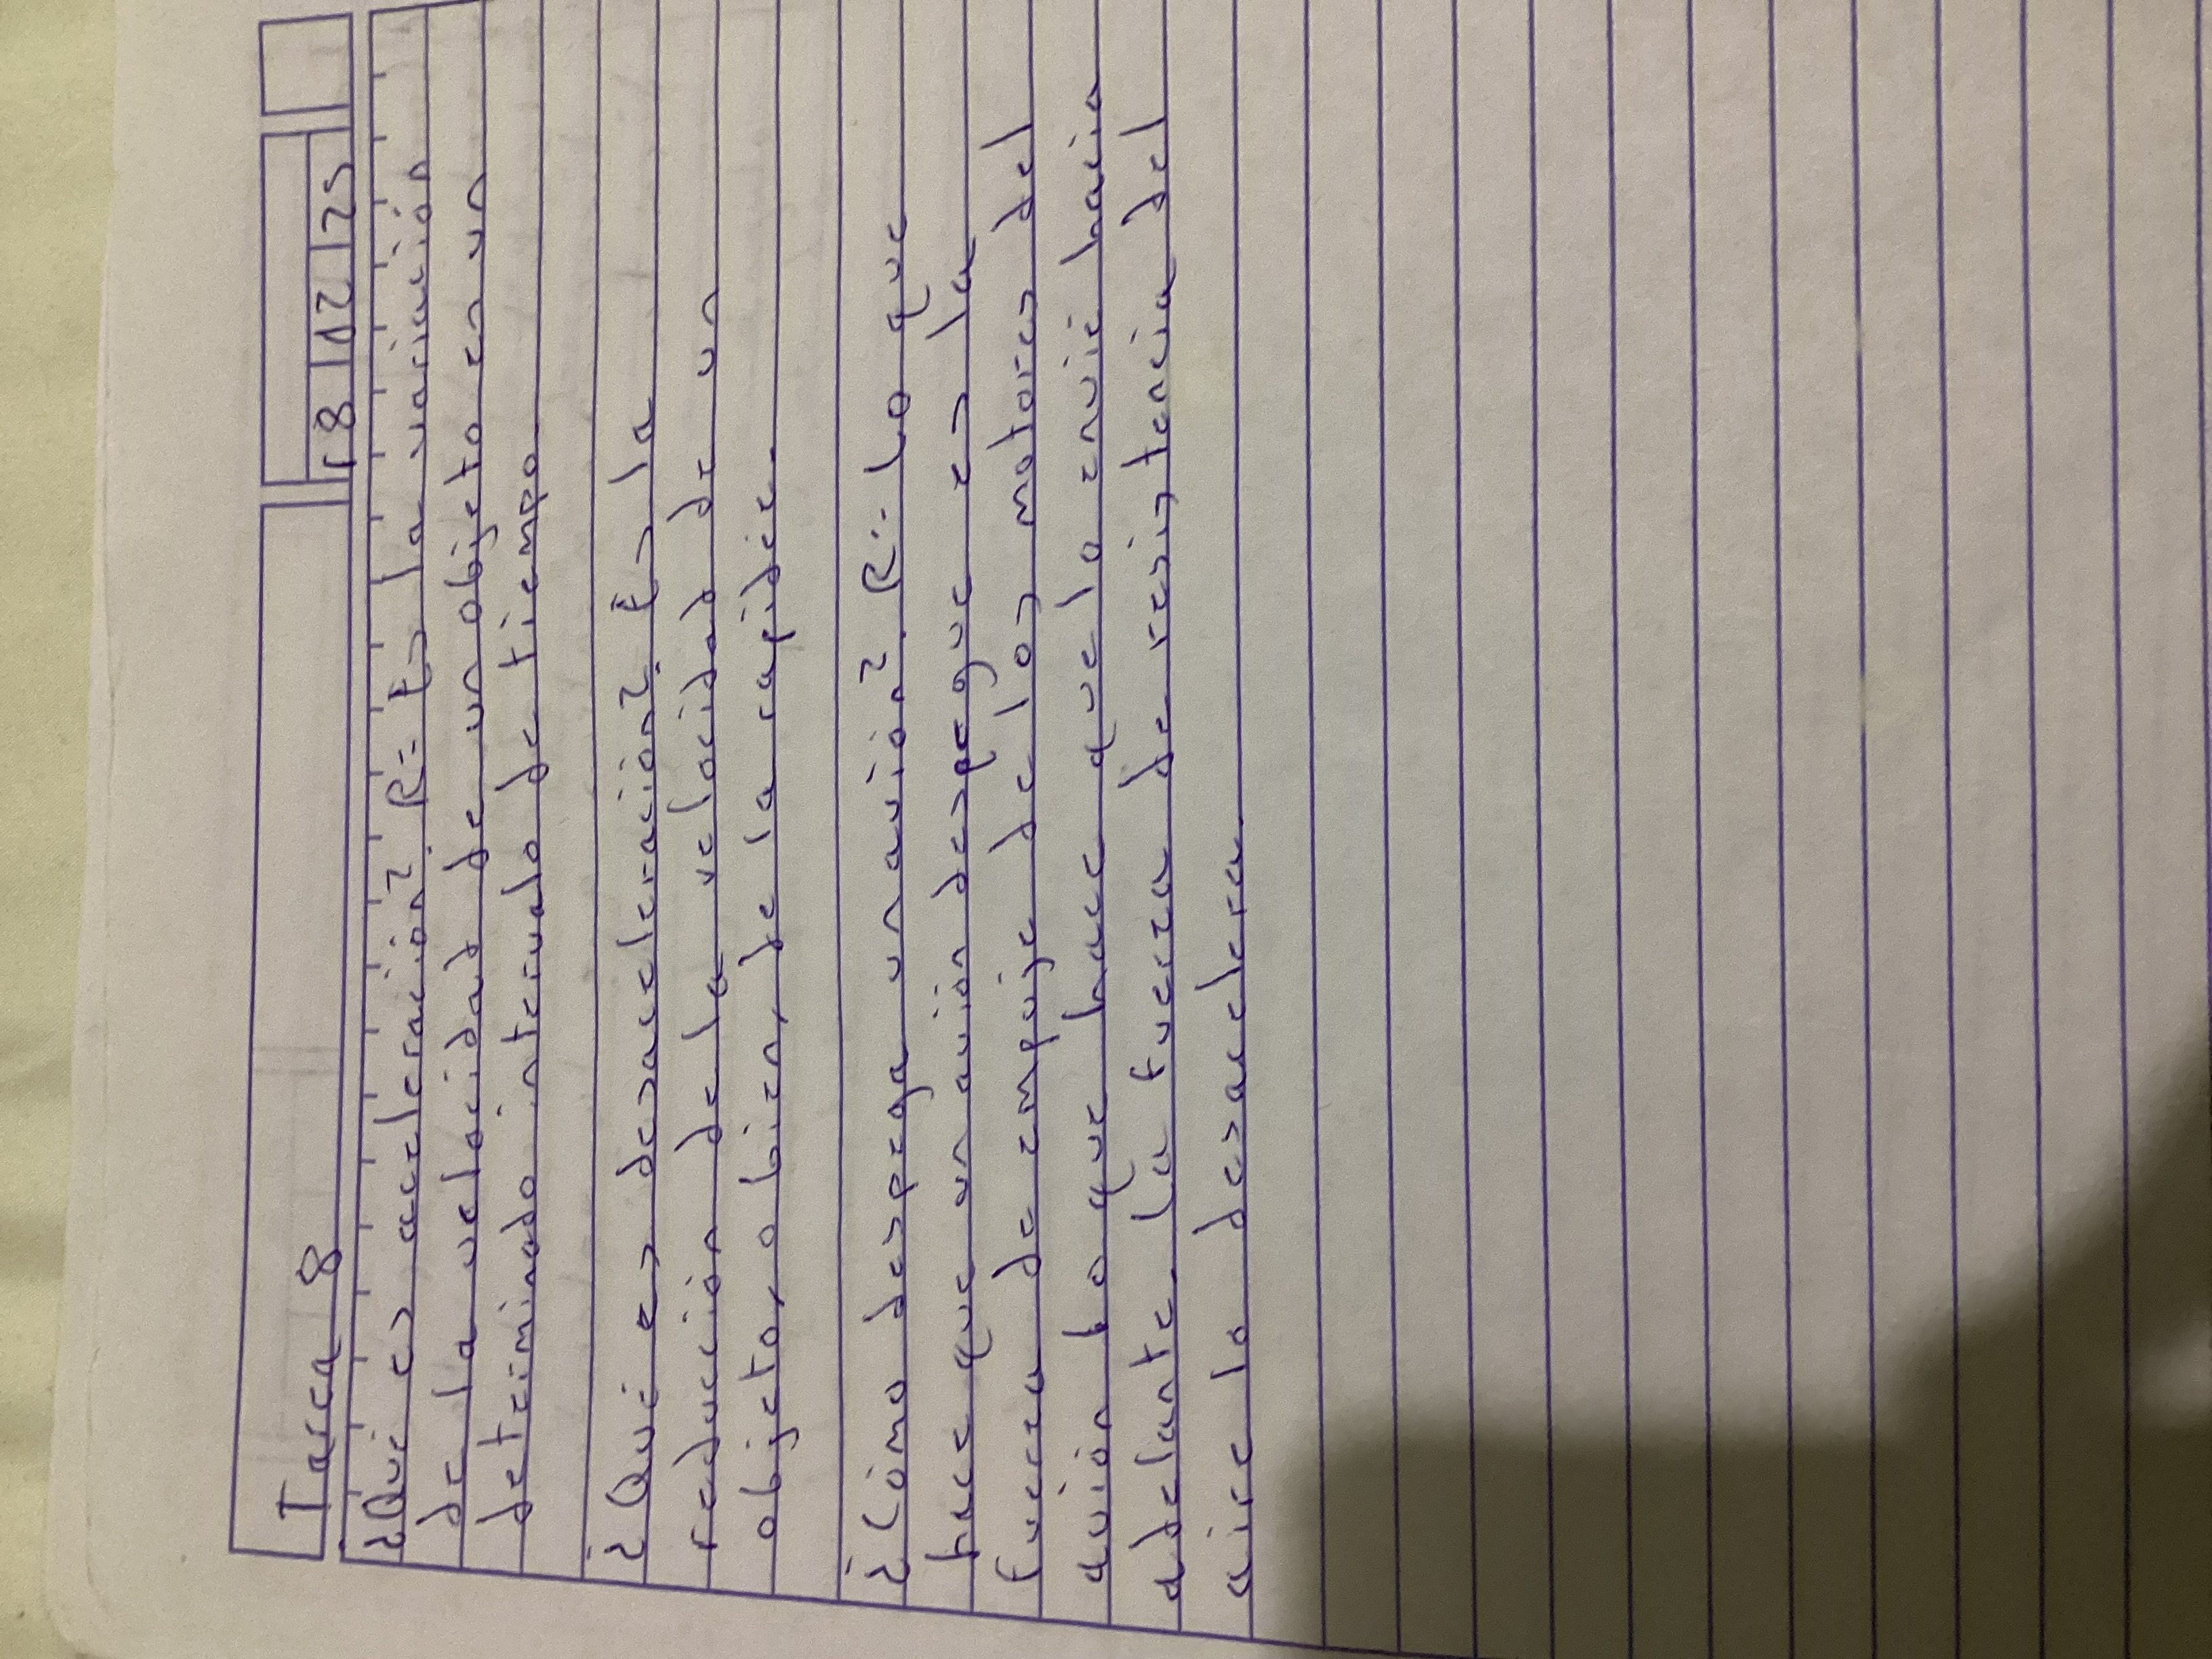 Tarea 8
18 12 25
¿Qué es aceleración? R:- Es la variación
de la velocidad de un objeto en un
determinado intervalo de tiempo.
¿Qué es desaceleración? Es la
reducción de la velocidad de un
objeto, o bien, de la rapidéz.
¿Cómo despega un avión? R:- Lo que
hace que un avión despegue es la
fuerza de empuje de los motores del
avión lo que hace que lo envié hacia
adelante. La fuerza de resistencia del
aire lo desacelera.